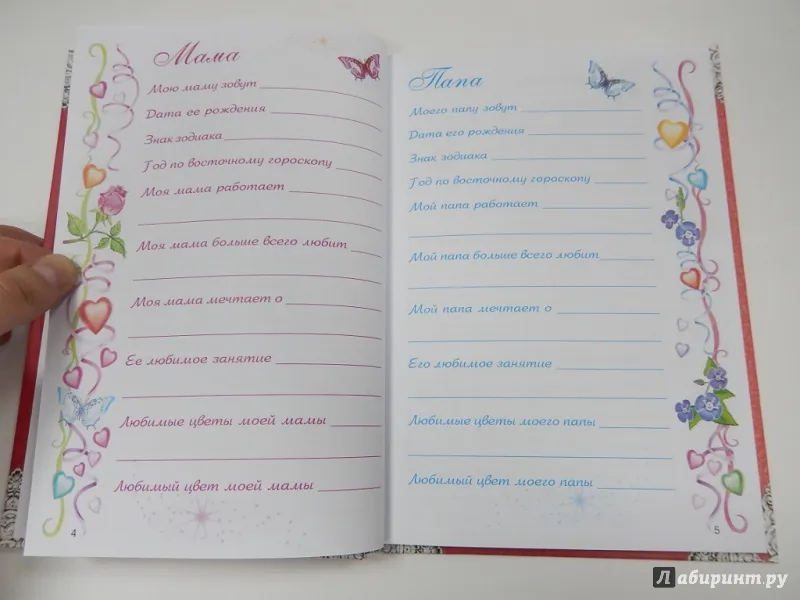 Мама
Мою маму зовут
Дата ее рождения
Знак зодиака
Год по восточному гороскопу
Моя мама работает
Моя мама больше всего любит
Моя мама мечтает о
Ее любимое занятие
Любимые цветы моей мамы
Любимый цвет моей мамы
4
Папа
Моего папу зовут
Дата его рождения
Знак зодиака
Год по восточному гороскопу
Мой папа работает
Мой папа больше всего любит
Мой папа мечтает о
Его любимое занятие
Любимые цветы моего папы
Любимый цвет моего папы
5
Лабиринт.ру